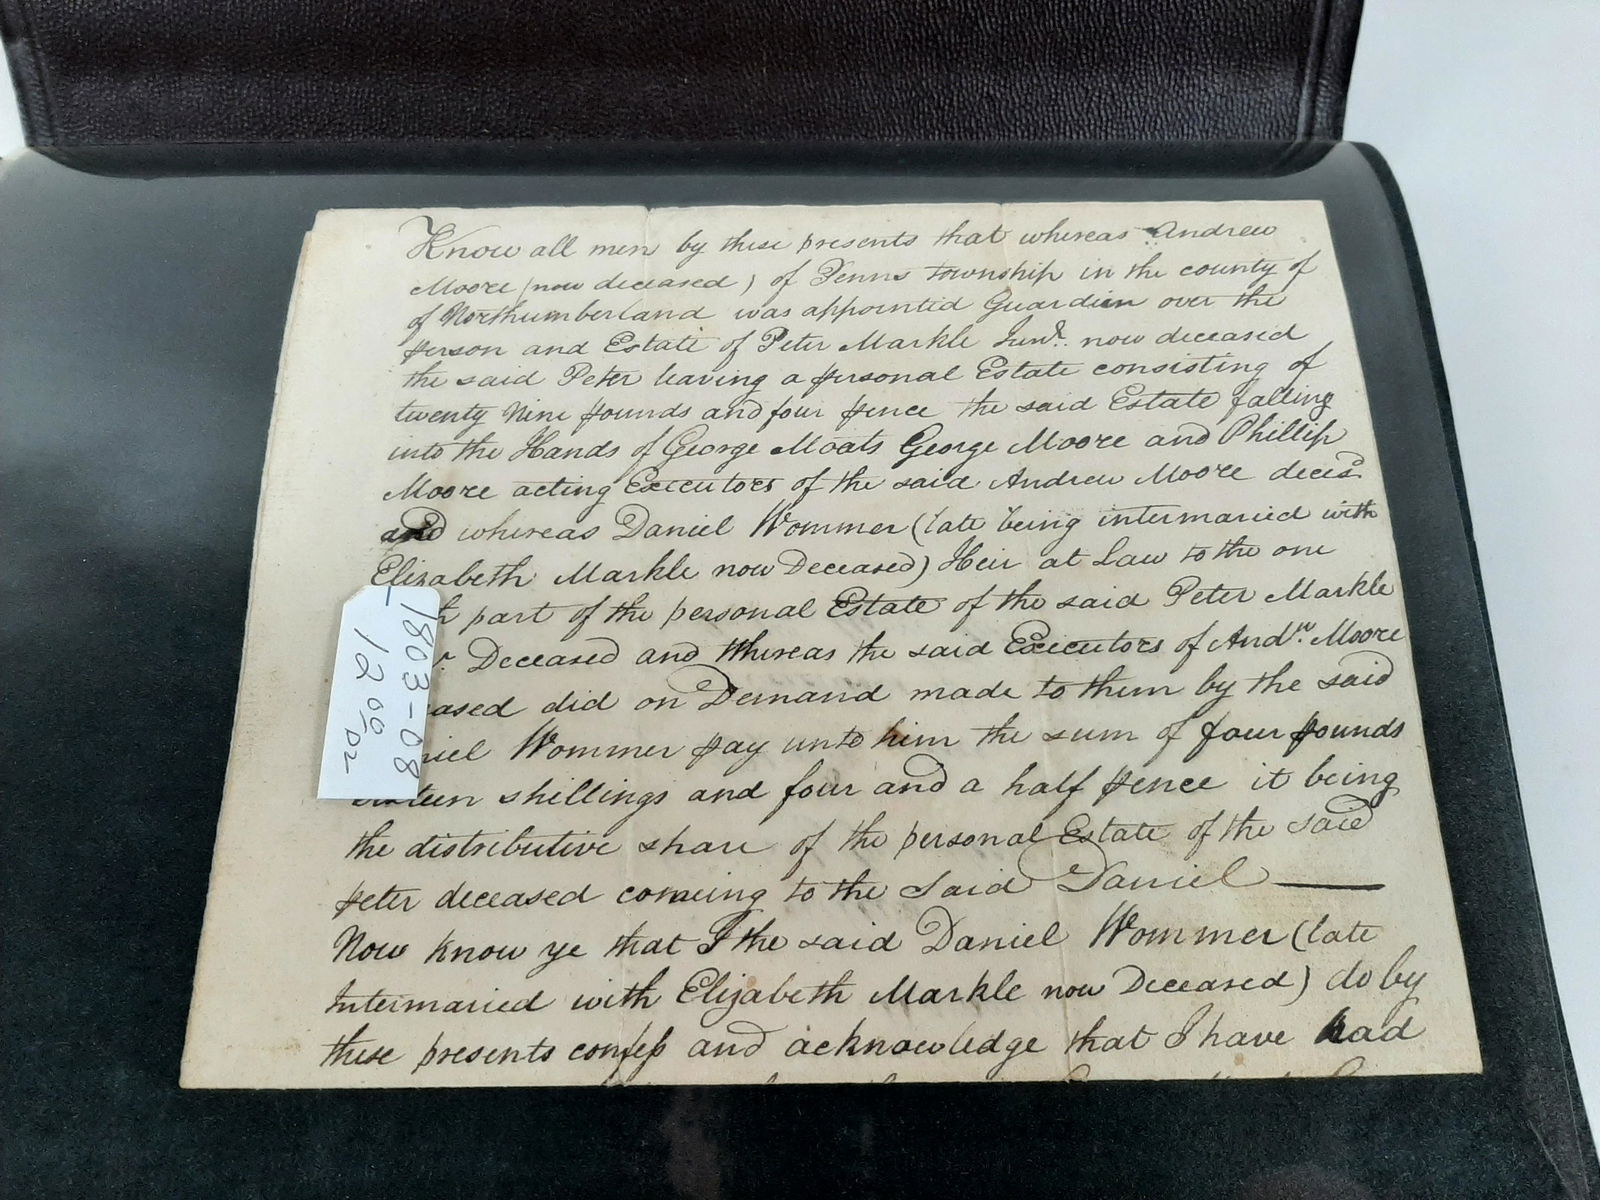 Know all men by these presents that whereas Andrew
Moore (now deceased) of Penns township in the county of
of Northumberland was appointed Guardian over the
person and Estate of Peter Markle Junr. now deceased
the said Peter leaving a personal Estate consisting of
twenty Nine pounds and four pence the said Estate falling
into the Hands of George Moats George Moore and Phillip
Moore acting Executors of the said Andrew Moore decesd
and whereas Daniel Wommer (late being intermaried with
Elizabeth Markle now Deceased) Heir at Law to the one
h part of the personal Estate of the said Peter Markle
r Deceased and Whereas the said Executors of Andw. Moore
eased did on Demand made to them by the said
niel Wommer pay unto him the sum of four pounds
teen shillings and four and a half pence it being
the distributive share of the personal Estate of the said
peter deceased comeing to the Said Daniel
Now know ye that I the said Daniel Wommer (late
Intermaried with Elizabeth Markle now Deceased) do by
these presents confess and acknowledge that I have had
1803-08
12 00/DR